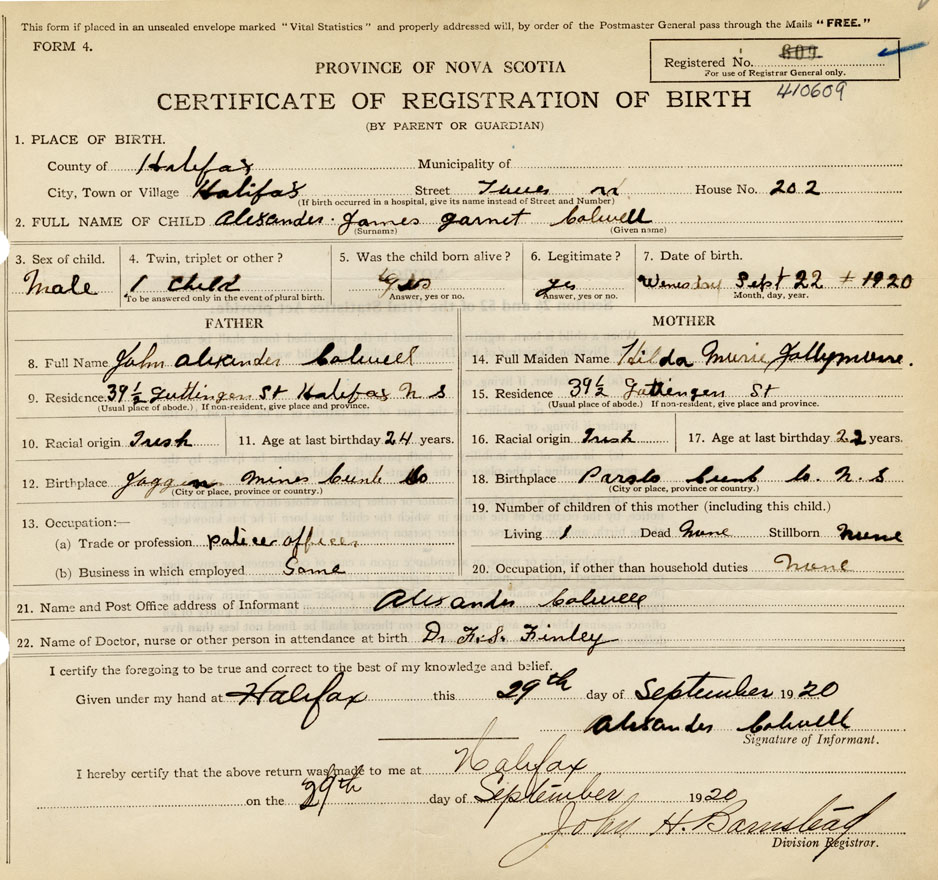 This form if placed in an unsealed envelope marked "Vital Statistics" and properly addressed will, by order of the Postmaster General pass through the Mails "FREE."
FORM 4.
Registered No. 609
For use of Registrar General only.
410609
PROVINCE OF NOVA SCOTIA
CERTIFICATE OF REGISTRATION OF BIRTH
(BY PARENT OR GUARDIAN)
1. PLACE OF BIRTH.
County of Halifax Municipality of
City, Town or Village Halifax Street House No. 202
(If birth occurred in a hospital, give its name instead of Street and Number)
2. FULL NAME OF CHILD Alexander James Garnet Colwell
(Surname) (Given name)
3. Sex of child. 4. Twin, triplet or other? 5. Was the child born alive? 6. Legitimate? 7. Date of birth.
Male 1 Child yes yes Wensday Sept 22 1920
To be answered only in the event of plural birth. Answer, yes or no. Answer, yes or no. Month, day, year.
FATHER
8. Full Name John Alexander Colwell
9. Residence 39½ Guttingen St Halifax N S
(Usual place of abode.) If non-resident, give place and province.
10. Racial origin Irish 11. Age at last birthday 24 years.
12. Birthplace Joggen Mines Cumb Co
(City or place, province or country.)
13. Occupation:—
(a) Trade or profession police officer
(b) Business in which employed Same
MOTHER
14. Full Maiden Name Hilda Murie Jollymore.
15. Residence 39½ Guttengen St
(Usual place of abode.) If non-resident, give place and province.
16. Racial origin Irish 17. Age at last birthday 22 years.
18. Birthplace Cumb Co. N. S
(City or place, province or country.)
19. Number of children of this mother (including this child.)
Living 1 Dead None Stillborn None
20. Occupation, if other than household duties None
21. Name and Post Office address of Informant Alexander Colwell
22. Name of Doctor, nurse or other person in attendance at birth Dr F.S. Finley
I certify the foregoing to be true and correct to the best of my knowledge and belief.
Given under my hand at Halifax this 29th day of September 1920
Alexander Colwell
Signature of Informant.
I hereby certify that the above return was made to me at Halifax
on the 29th day of September 1920
John H. Barnstead
Division Registrar.